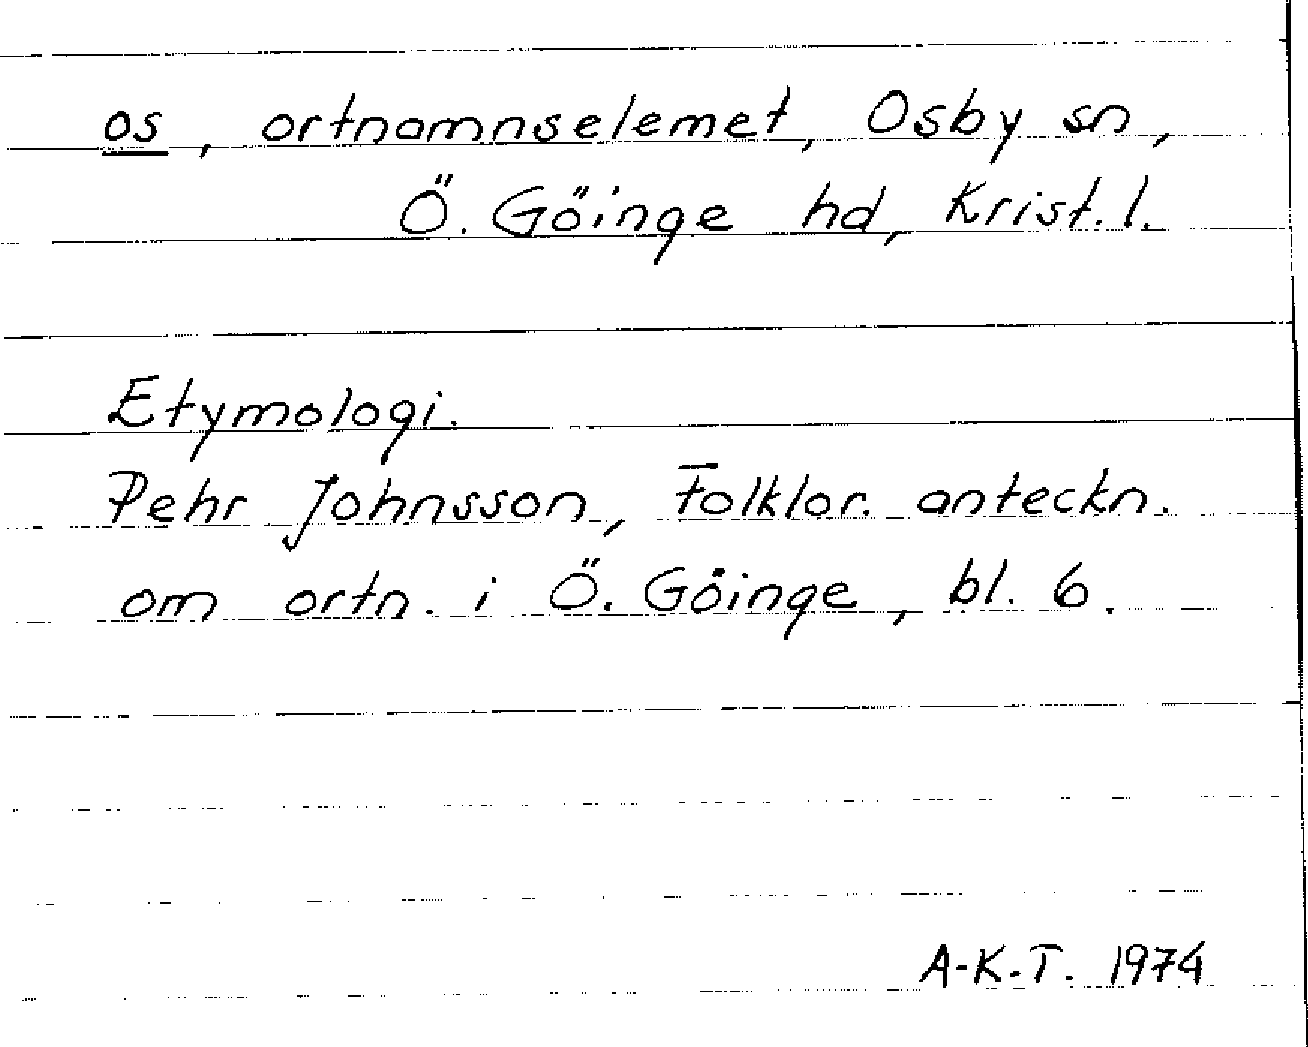 os, ortnamnselemet, Osby sn,
Ö. Göinge hd, Krist. l.
Etymologi.
Pehr Johnsson, Folklor. anteckn.
om ortn. i Ö. Göinge, bl. 6.
A-K-T. 1974